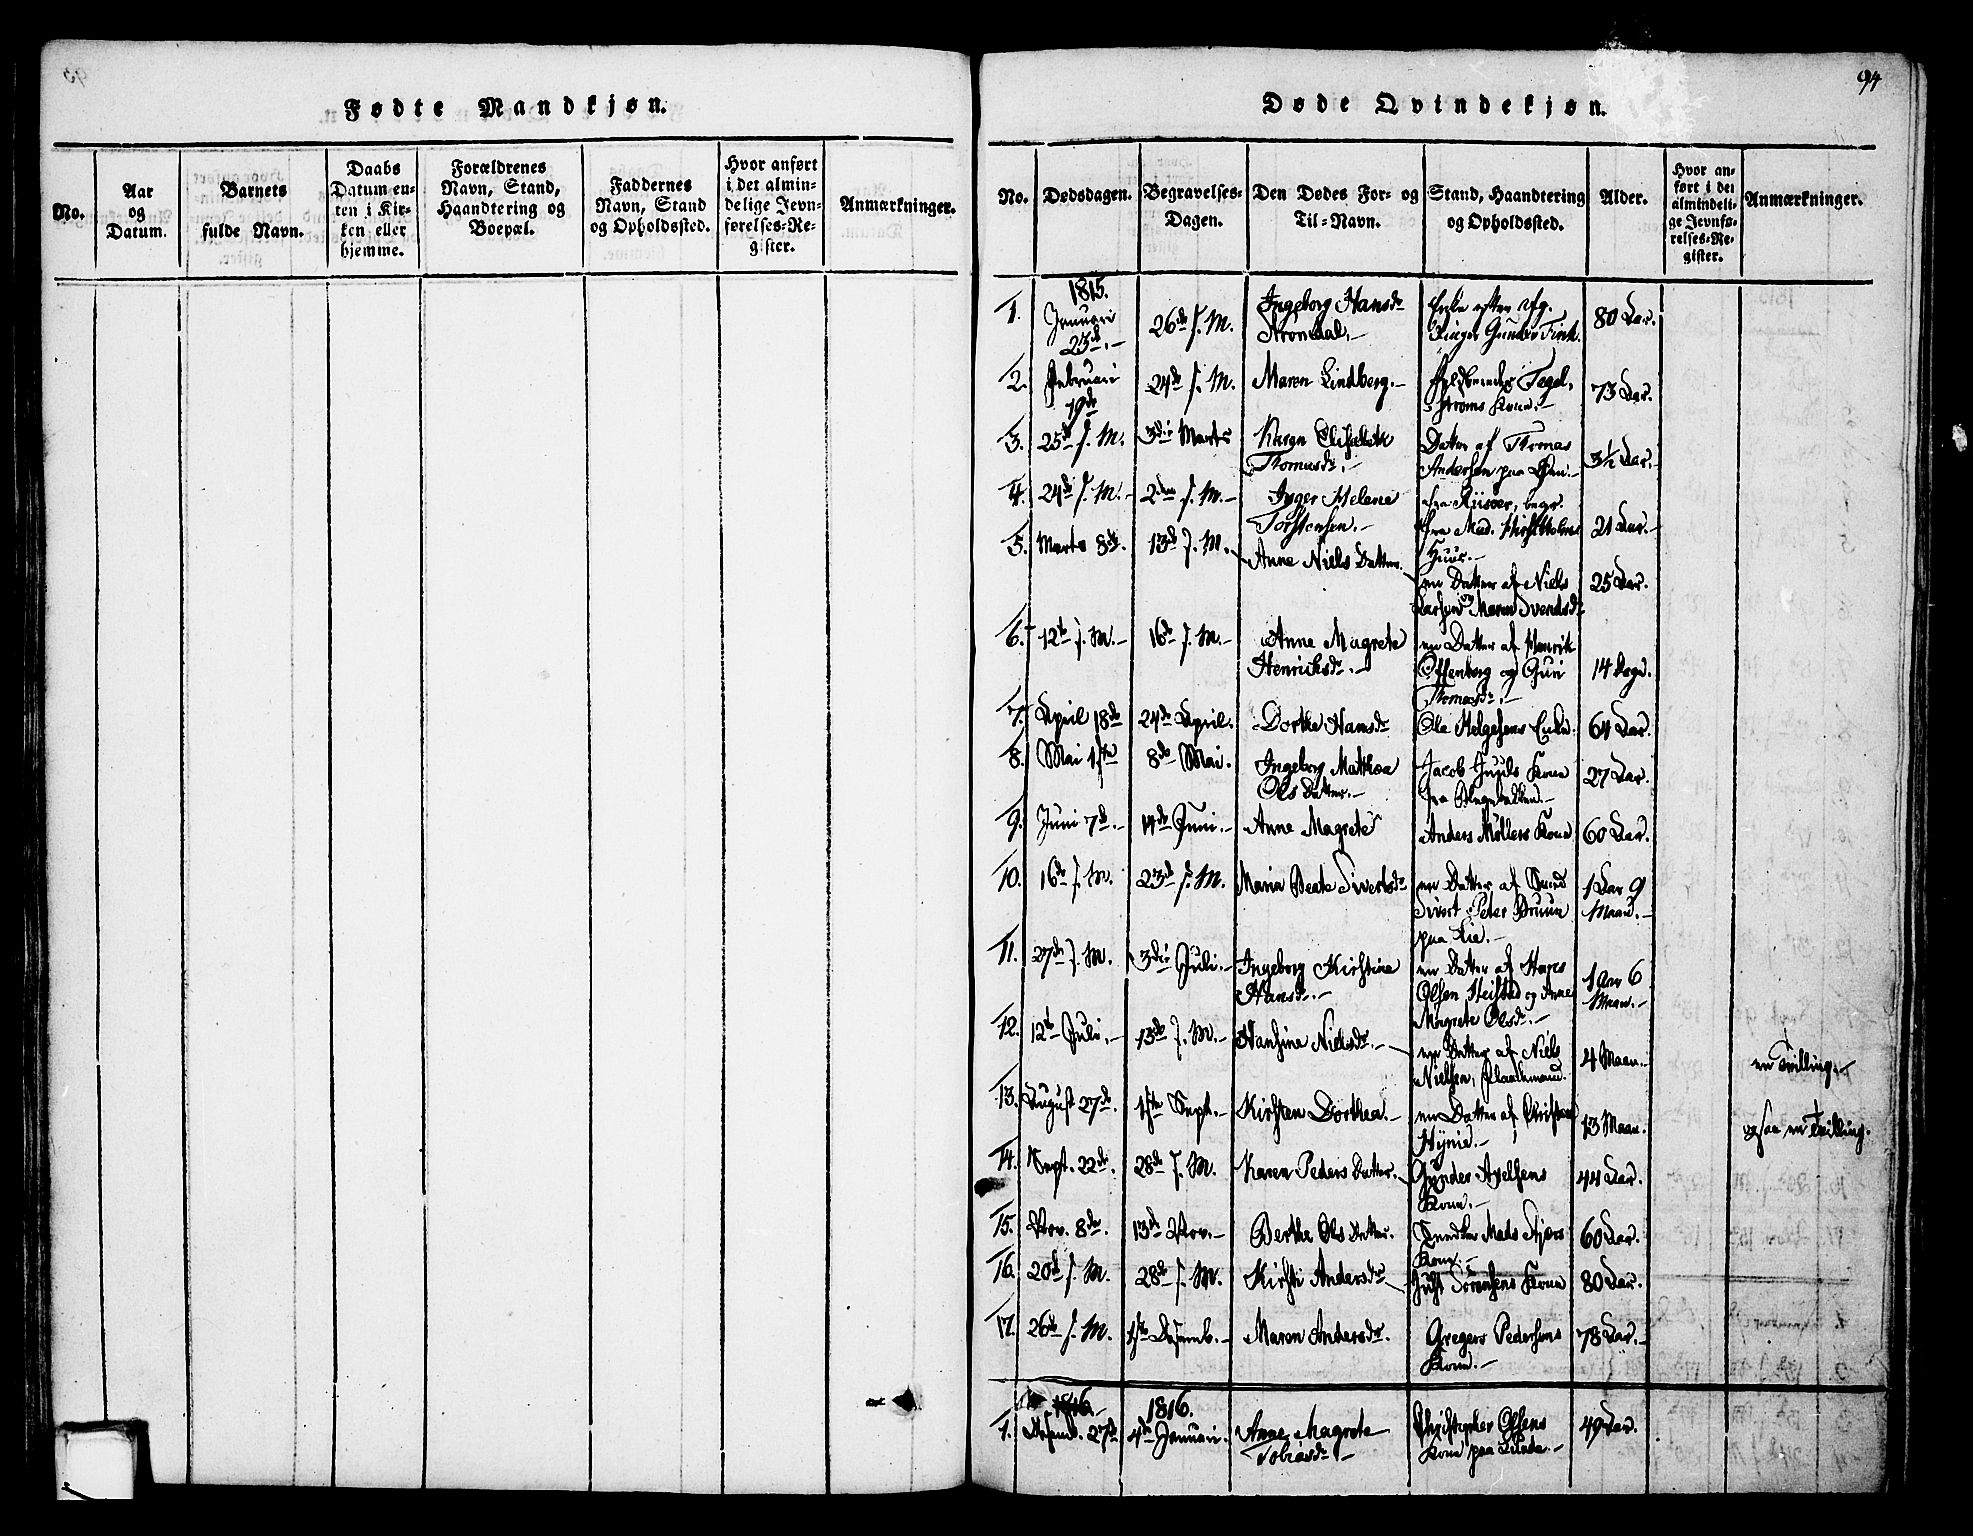 Fødte Mandkjøn.
No.
Aar
og
Datum.
Barnets
fulde Navn.
Daabs
Datum en-
ten i Kir-
ken eller
hjemme.
Forældrenes
Navn, Stand,
Haandtering og
Boepæl.
Faddernes
Navn, Stand
og Opholdssted.
Hvor anført
i det almin-
delige Jevn-
førelses-Re-
gister.
Anmærkninger.
94
Døde Qvindekjøn.
No.
Dødsdagen.
Begravelses-
Dagen.
Den Dødes For- og
Til-Navn.
Stand, Haandtering
og Opholdssted.
Alder.
Hvor an-
ført i det
almindeli-
ge Jevnfø-
relses-Re-
gister.
Anmærkninger.
1815.
1. Januari 23d.- 26de s. M. Ingeborg Hansdr
Enke efter
Gunder 80 Aar.
2. Februari 19de 24de s. M. Maren Lindberg.-
Tegel-
strøms Kone.- 73 Aar.
3. 25de s. M. 3die Marts Karen Elisabeth
Thomasdr.-
Datter af Thomas
Andersen paa 3½ Aar.-
4. 24de s. M.- 2den s. M.- Inger Helene
Torstensen.-
fra Riisøer, begr.
fra Mad.
Huus.- 21 Aar.-
5. Marts 8de. 13de s. M. Anne Niels Datter.
en Datter af Niels
Larsen og Maren Svendsdr 25 Aar.
6. 12te s. M.- 16de s. M.- Anne Magrete
Henrichsdr.-
en Datter af Henrik
Offenberg og Guri
Thomasdr.- 14 Dage.
7. April 18de 24de April. Dorthe Hansdr Ole Helgesens Enke. 64 Aar.
8. Mai 1ste 8de Mai. Ingeborg Mathea
Ols Datter.-
Jacob Juuls Kone
fra 27 Aar.
9. Juni 7de.- 14de Juni.- Anne Magrete Anders Møllers Kone 60 Aar.
10. 16de s. M. 23de s. M. Maria Beate Sivertsdr
en Datter af
Sivert Peter Bruun
paa Lie.- 1 Aar 9
Maan.-
11. 27de s. M. 3die Juli.- Ingeborg Kirstine
Hansdr.-
en Datter af Hans
Olsen Heistad og Anne
Magrete Olsdr.- 1 Aar 6
Maan.-
12. 12te Juli.- 15de s. M.- Hansine Nielsdr.-
en Datter af Niels
Nielsen, 4 Maan.- en Tvilling.-
13. August 27de. 1ste Sept.- Kirsten Dorthea.-
en Datter af Christian
13 Maan. ogsaa en Tvilling.
14. Sept. 22de. 28de s. M. Karen Peders Datter.
Gunder Axelsens
Kone.- 44 Aar.
15. Nov. 8de. 13de Nov.- Berthe Ols Datter.
Snedker Mads
Kone.- 60 Aar.
16. 20de s. M. 28de s. M. Kirsti Andersdr
Just Sørensens Kone 80 Aar.
17. 26de s. M. 1ste Desemb.- Maren Andersdr.
Gregers Pedersens
Kone.- 78 Aar.-
1816.
1. Desemb. 27de 4de Januari. Anne Magrete
Tobiasdr.-
Christopher Olsens
Kone paa Lunde.- 49 Aar.